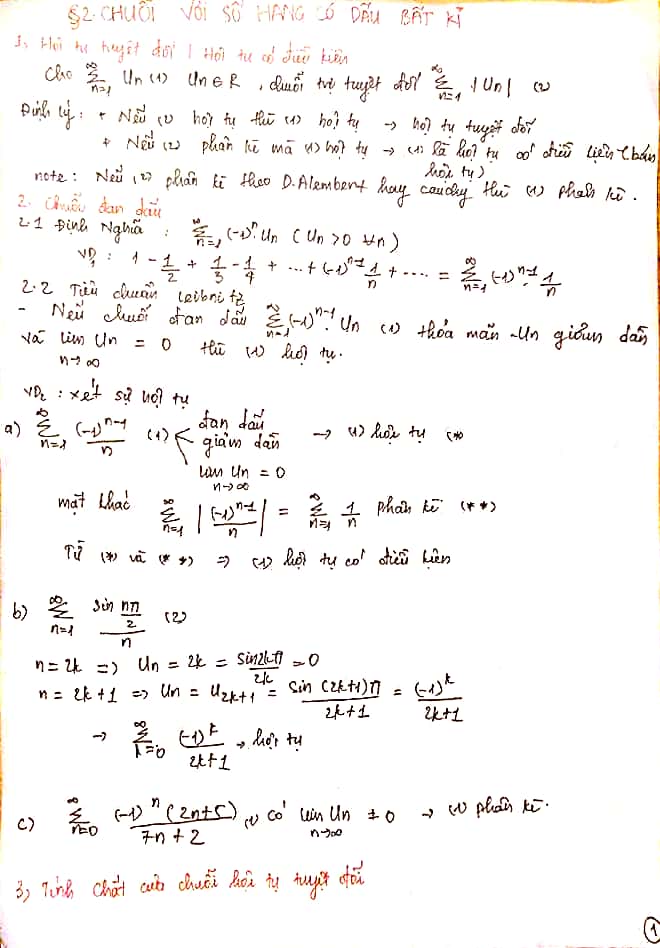 §2. CHUỖI VỚI SỐ HẠNG CÓ DẤU BẤT KÌ
1, Hội tụ tuyệt đối | Hội tụ có điều kiện
Cho ∑_{n=1}^{∞} Un (1) Un ∈ R, chuỗi trị tuyệt đối ∑_{n=1}^{∞} |Un| (2)
Định lý: + Nếu (2) hội tụ thì (1) hội tụ → hội tụ tuyệt đối
+ Nếu (2) phân kì mà (1) hội tụ → (1) là hội tụ có điều kiện (bán
hội tụ)
note: Nếu (2) phân kì theo D.Alembert hay cauchy thì (1) phân kì.
2. Chuỗi đan dấu
2.1 Định Nghĩa : ∑_{n=1}^{∞} (-1)^n. Un ( Un > 0 ∀n)
VD1 : 1 - 1/2 + 1/3 - 1/4 + ... + (-1)^{n-1} 1/n + .... = ∑_{n=1}^{∞} (-1)^{n-1}. 1/n
2.2 Tiêu chuẩn leibnitz
- Nếu chuỗi đan dấu ∑_{n=1}^{∞} (-1)^{n-1}. Un (1) thỏa mãn -Un giảm dần
và lim_{n→∞} Un = 0 thì (1) hội tụ.
VD2 : xét sự hội tụ
a) ∑_{n=1}^{∞} (-1)^{n-1}/n (1) đan dấu
giảm dần → (1) hội tụ (*
lim_{n→∞} Un = 0
mặt khác ∑_{n=1}^{∞} |(-1)^{n-1}/n| = ∑_{n=1}^{∞} 1/n phân kì (**)
Từ (*) và (**) ⇒ (1) hội tụ có điều kiện
b) ∑_{n=1}^{∞} sin(nπ/2)/n (2)
n = 2k ⇒ Un = 2k = sin2kπ/2k = 0
n = 2k+1 ⇒ Un = U_{2k+1} = sin(2k+1)π/2k+1 = (-1)^k/2k+1
→ ∑_{k=0}^{∞} (-1)^k/2k+1 → hội tụ
c) ∑_{n=0}^{∞} (-1)^n (2n+5)/7n+2 (1) có lim_{n→∞} Un ≠ 0 → (1) phân kì.
3, Tính chất của chuỗi hội tụ tuyệt đối
1